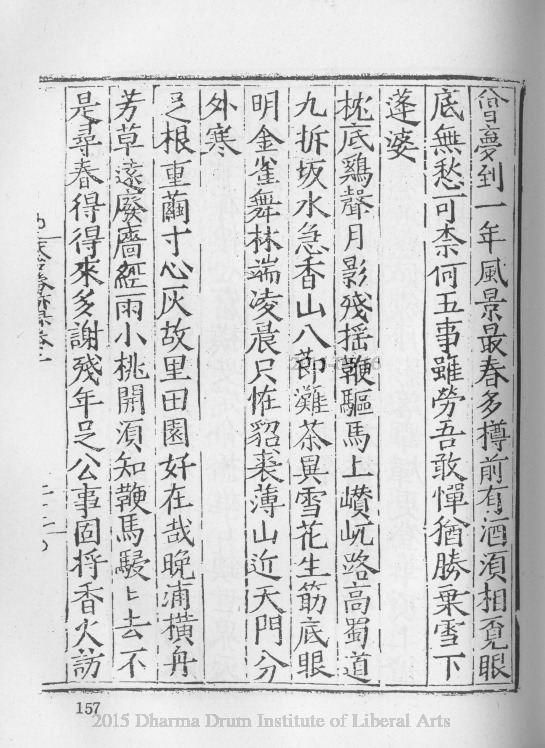 曾夢到一年風景最春多樽前有酒湏相覔眼
底無愁可柰何五事雖勞吾敢憚猶勝乗雪下
蓬婆
枕底鷄聲月影殘揺鞭驅馬上巑岏路高蜀道
九折坂水急香山八節灘茶異雪花生筯底眼
明金雀舞林端凌晨只恠貂裘薄山近天門分
外寒
足根重繭寸心灰故里田園好在哉晚浦横舟
芳草遠廢廧經雨小桃開湏知鞭馬駸〻去不
是尋春得得來多謝殘年足公事固将香火訪
157
2015 Dharma Drum Institute of Liberal Arts